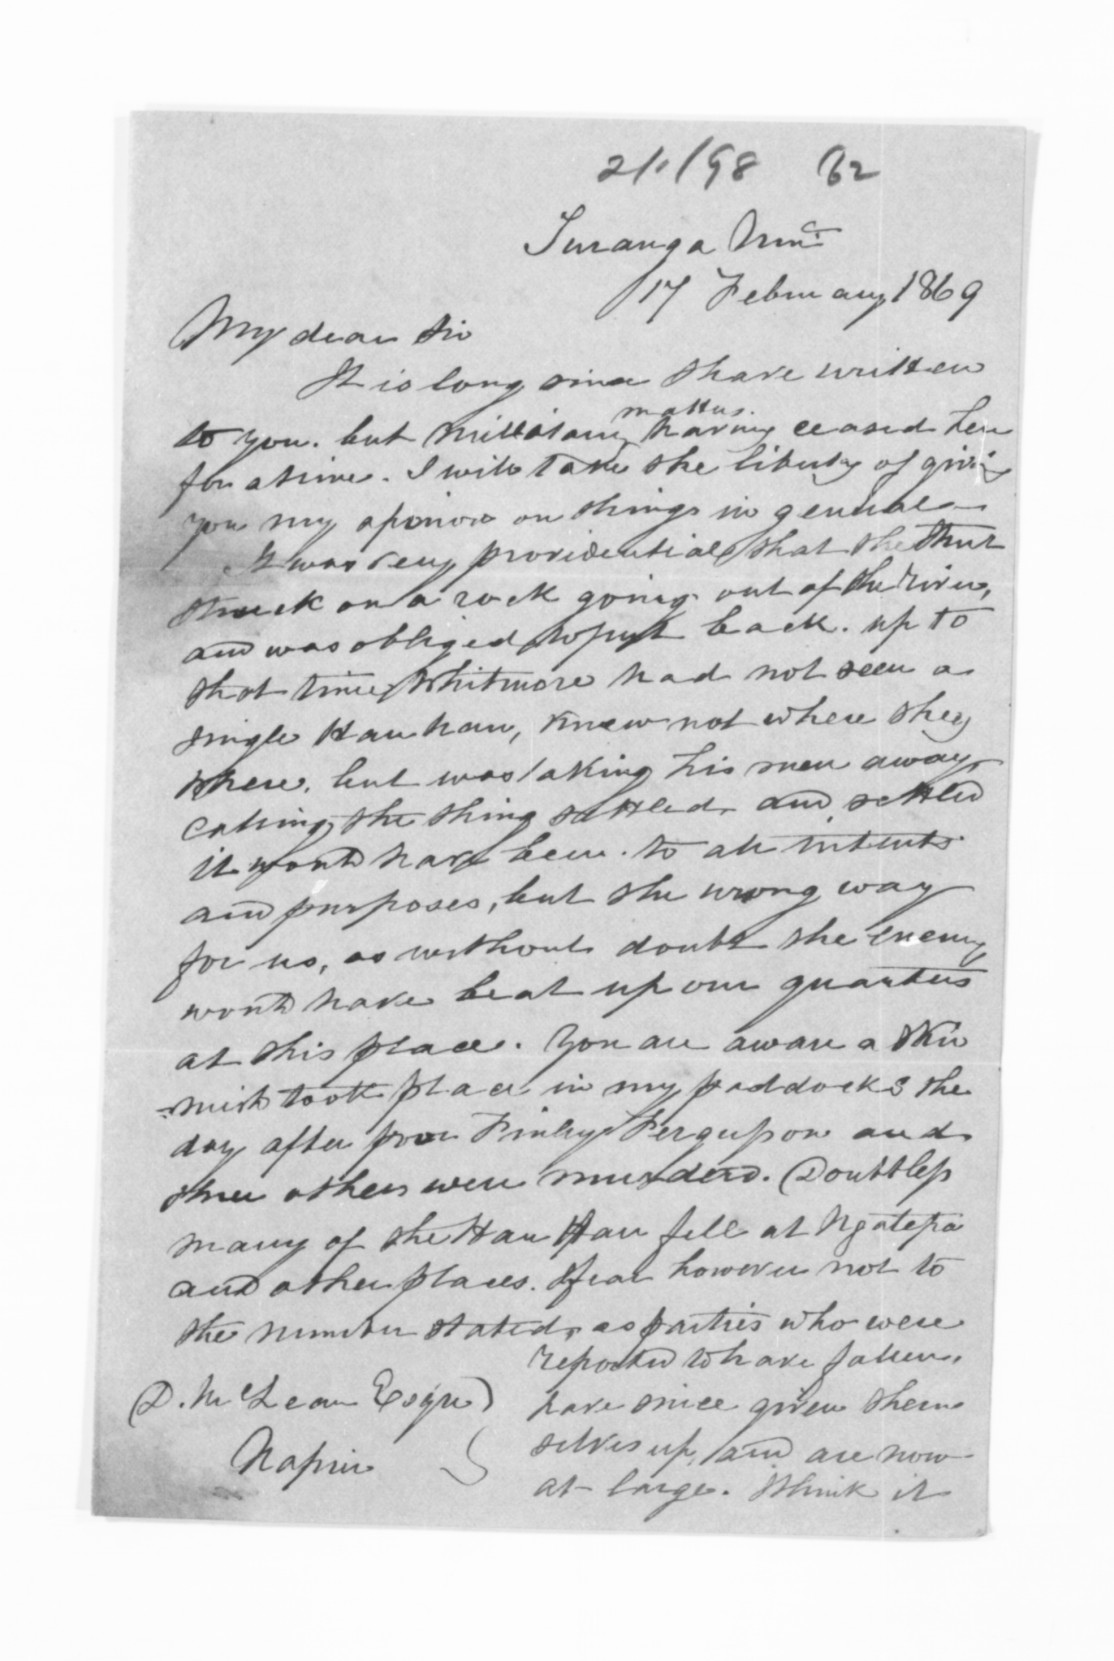 62
Turanga
17 February 1869
My dear Sir
It is long since I have written
to you. but millatary matters having ceased here
for a time. I will take the liberty of giving
you my opinion on things in general
It was very providential that the Sturt
struck on a rock going out of the River,
and was obliged to put back. up to
that time Whitmore had not seen a
single Hau hau, knew not where they
where, but was taking his men away,
calling the thing settled, and settled
it would have been. to all intents
and purposes, but the wrong way
for us, as without doubt the enemy
would have beat up our quarters
at this place. You are aware a Skir
-mish took place in my paddocks the
day after poor Finlay Fergusson and
three others were murderd. Doubtless
many of the Hau Hau fell at Ngatepa
and other places. I fear however not to
the number stated, as parties who were
reported to have fallen,
have since given them
selves up, and are now
at large. I think it
D. McLean Esqre
Napier